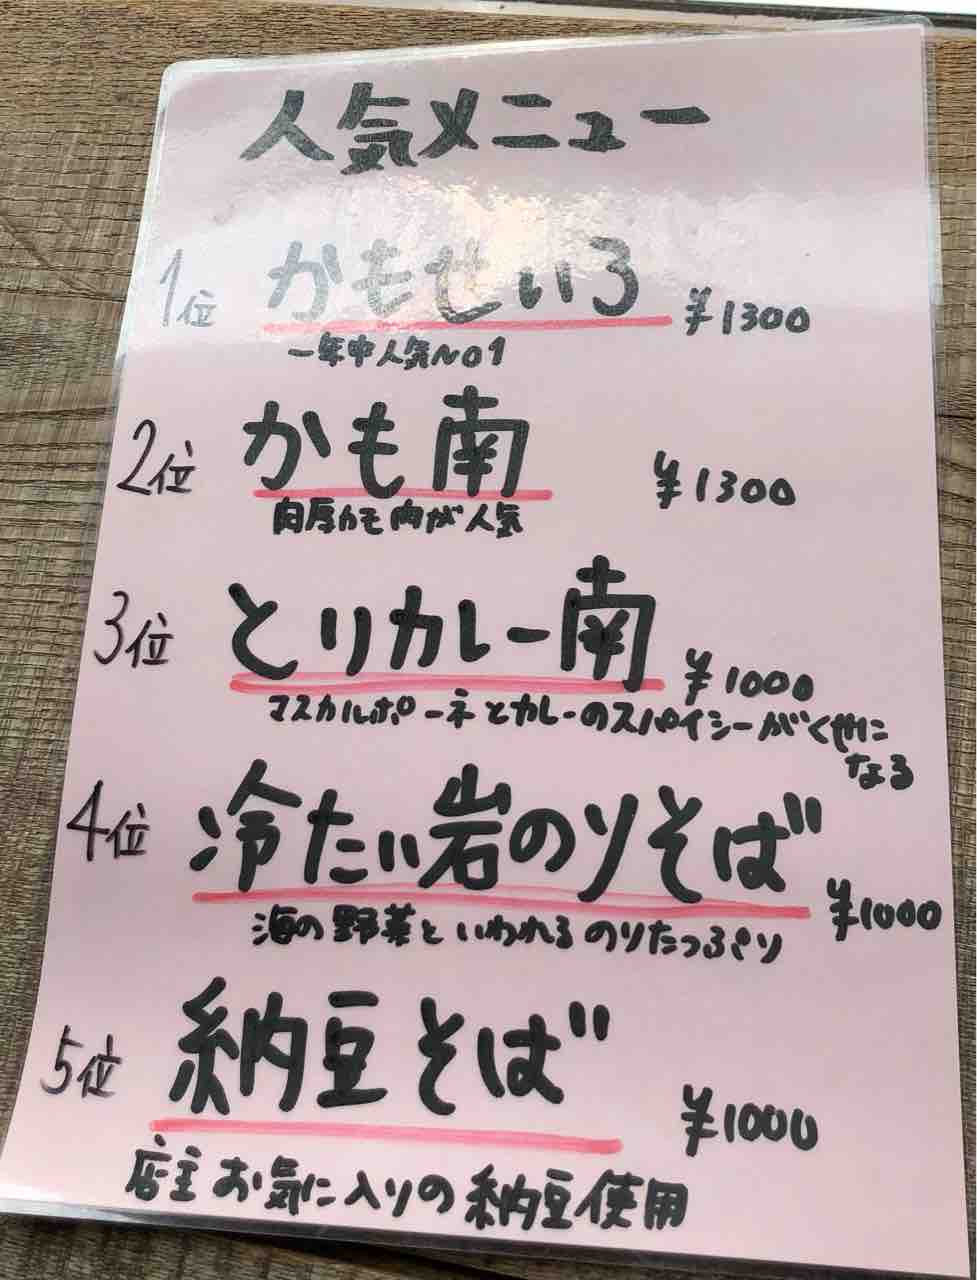 人気メニュー
1位 かもせいろ ¥1300
一年中人気NO1
2位 かも南 ¥1300
肉厚かも肉が人気
3位 とりカレー南 ¥1000
マスカルポーネとカレーのスパイシーがくせに
なる
4位 冷たい岩のりそば ¥1000
海の野菜といわれるのりたっぷり
5位 納豆そば ¥1000
店主お気に入りの納豆使用